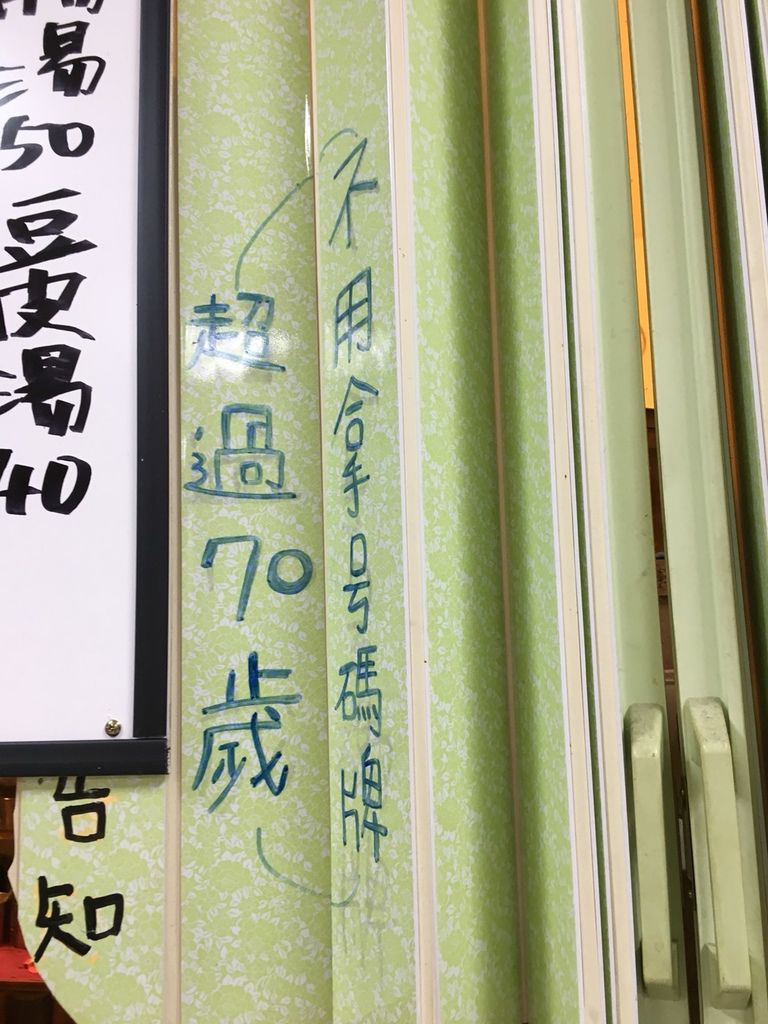 湯50 豆皮湯40
超過70歲
不用拿号碼牌
告知